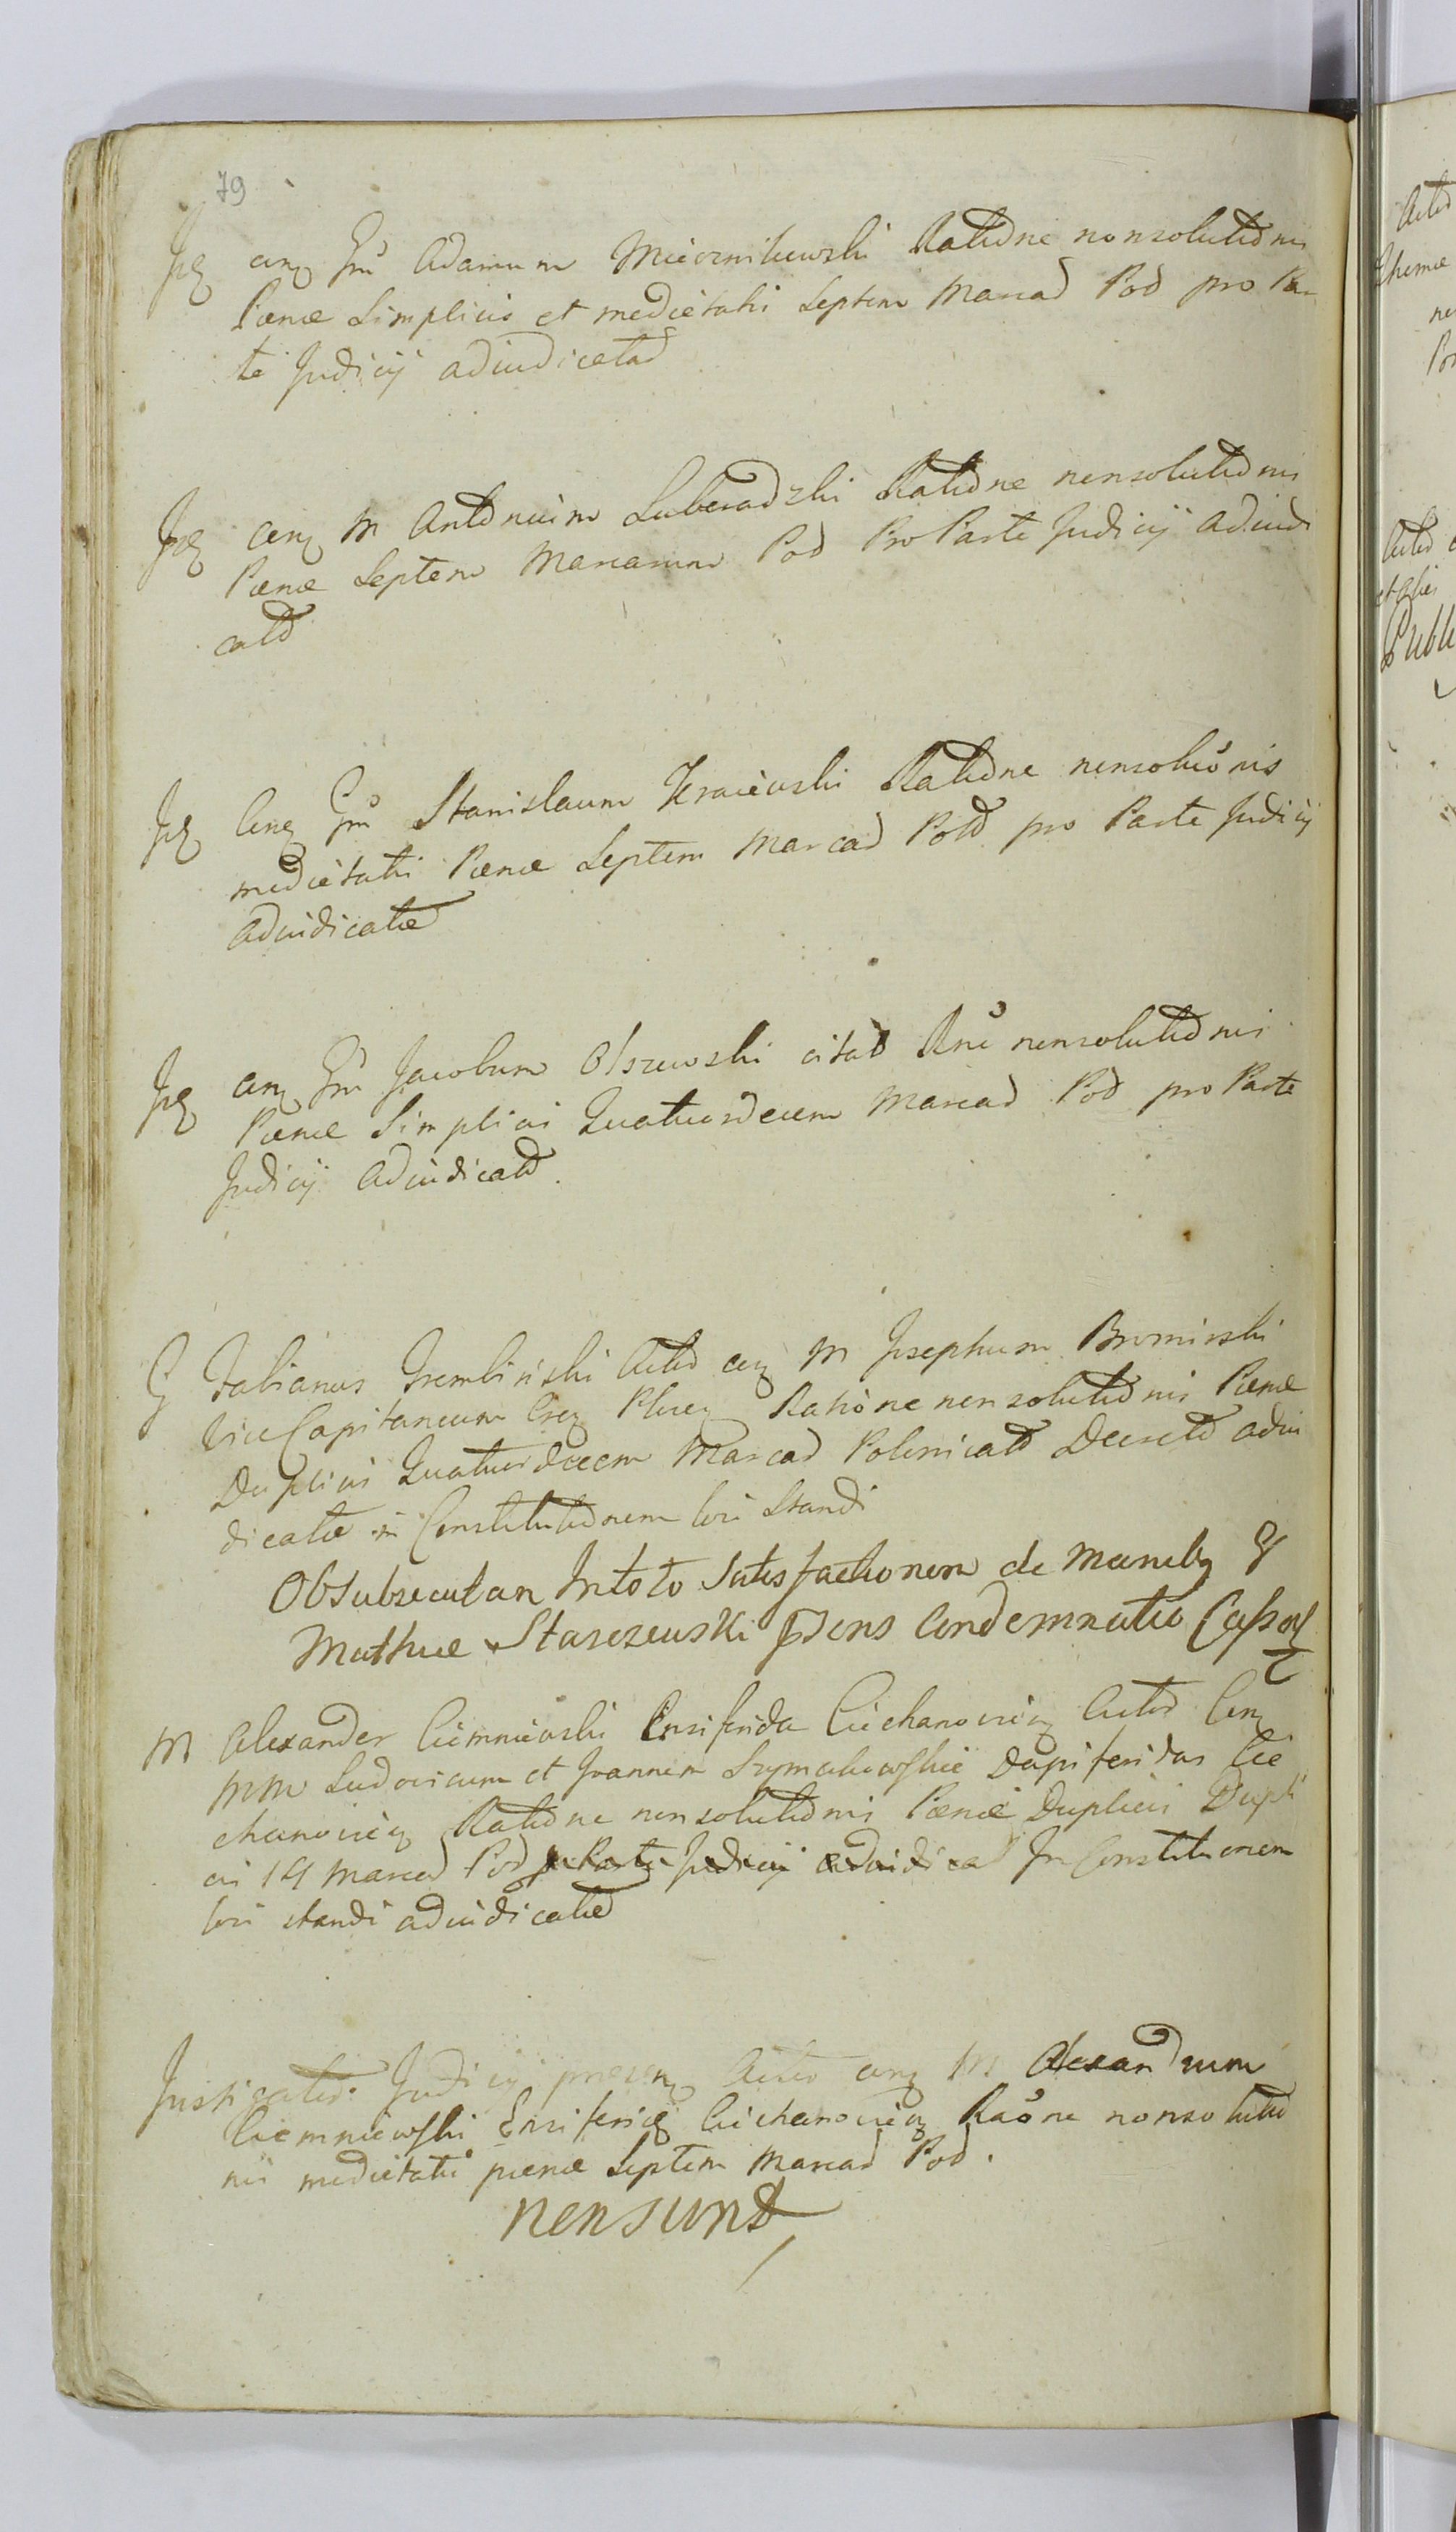 79
Ide cing Gm Adamum Miecznikowski Ratione nonsolutionis
Pœnæ Simplicis et medietatis Septem Marcar Pol pro Par
te Judicij adiudicatar
Ide cing M Antonium Luberadzki Ratione nonsolutionis
Pœnæ Septem Marcarum Pol Pro Parte Judicij adiudi
cato
Ide Cing Gm Stanislaum Kraiewski Ratione nonsoluonis
medietatis Pœnæ Septem Marcar Pol pro Parte Judicij
adiudicatæ
Ide cing Gm Jacobum Olszewski citat Rne nonsolutionis
Pœnæ Simplicis Quatuordecem Marcar Pol pro Parte
Judicij adiudicato
G Fabianus Trembinski Actor cing M Josephum Bromirski
ViceCapitaneum Ratione nonsolutionis Pœnæ
Duplicis Quatuordecem Marcar Polonicali Decreto adiu
dicatæ in Constitutionem lori Standi
Obsubsecutan Intoto Satisfactionem de Manibq G
Mathiæ Staszewski pdens Condemnatio Cassat
M Alexander Ciemniewski Ensiferida Ciechanovieng Actor Cing
MM Ludovicum et Joannem Szymakowskie Dapiferidas Cie
chanovieng Ratione nonsolutionis Pœnæ Duplicis Dupli
cis 14 Marcar Pol pro Parte Judicij adiudicat In Constitutionem
lori standi adiudicatæ
Instigator Judicij præseng Actor cing M Alexandrum
Ciemniewski Ensiferid Ciechanovieng Raone nonsolutio
nis medietatis pœnæ Septem Marcar Pol.
nonsunt